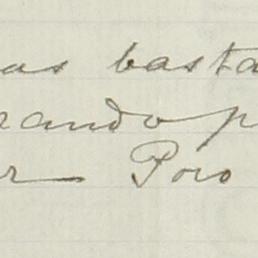 as basta
rando p
r— Poro